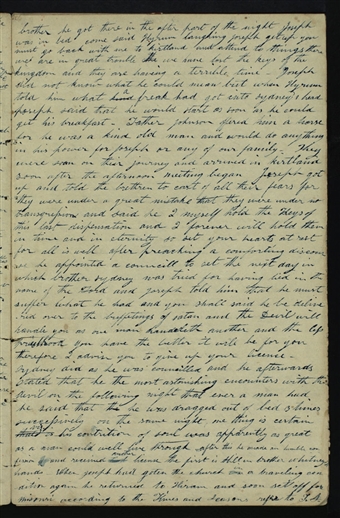 brother he got there in the after part of the night Joseph
was in bed come said Hyrum laughing joseph get up you
must go back with me to kirtland and attend to things there
we are in great trouble we have lost the keys of the
kingdom and they are having a terrible time Joseph
did not know what he could mean but when Hyrum
told him what kind freak had got into sydney's head
joseph said that he would start as soon as he could
get his breakfast Father johnson lered him a horse
for he was a kind old man and would do anything
in his power for joseph or any of our family They
were soon on their journey and arrived in kirtland
soon after the afternoon meeting began joseph got
up and told the bretheren to cast of all their fears for
they were under a great mistake that they were under no
transgression and said he I myself hold the Keys of
this last dispensation and I forever will hold them
in time and in eternity so set your hearts at rest
for all is well after preaching a comforting discour
se he appointed a councill to set the next day by
which brother sydney was tried for having lied in the
name of the Lord and joseph told him that he must
suffer what he had and you shall said he be delive
red over to the buffetings of satan and the Devil will
handle you as one man handleth another and the less
priesthood you have the better it will be for you
therefore I advise you to give up your license
Sydney did as he was councilled and he afterwards
stated that he the most astonishing encounters with the
devil on the following night that ever a man had
he said that he was dragged out of bed 3 times
successively on the same night one thing is certain
his contrition of soul was apparently as great
as a man could well live through after he
and received another
hands When joseph had gotten the church in a traveling con
dition again he returned to Hiram and soon set off for
missouri according to the Times and Seasons refer to